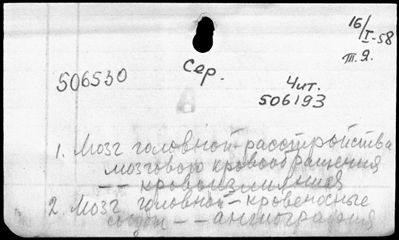 16/I-58
т. Я.
506530
Сер.
Чит.
506193
1. Мозг головной - расстройства
мозгового кровообращения
— — кровоизлияния
2. Мозг головной - кровеносные
сосуды — — ангиография